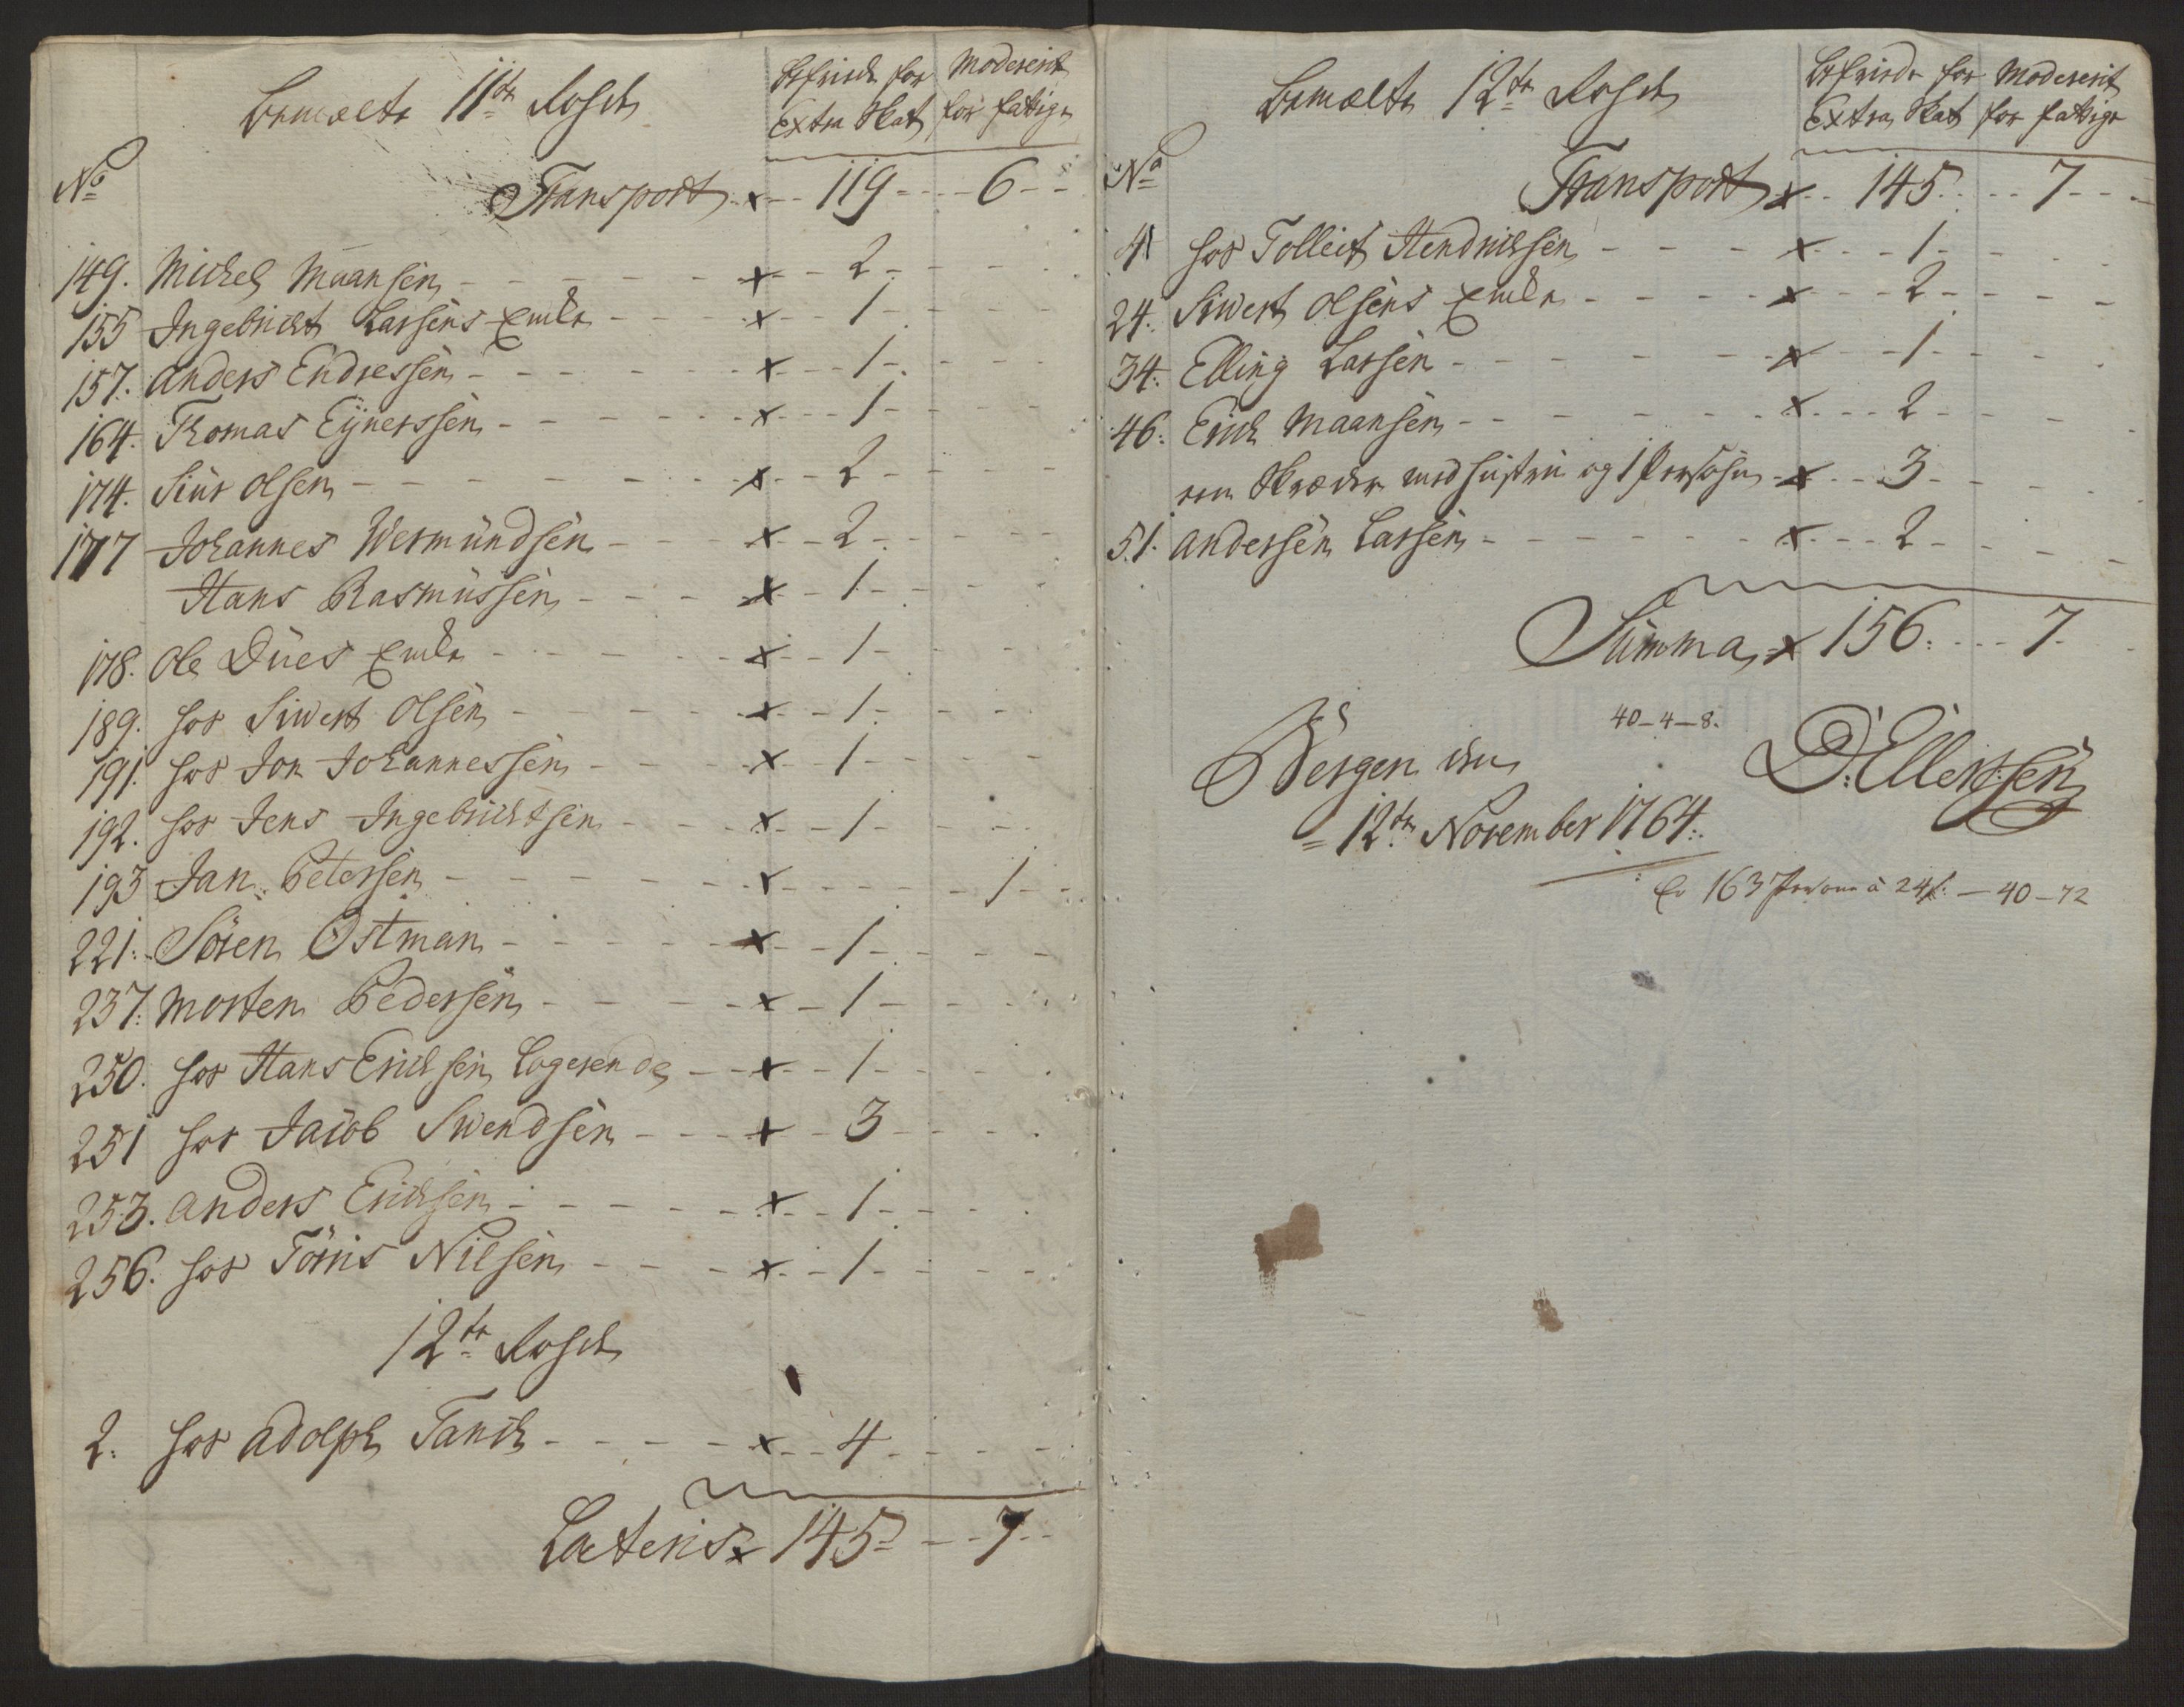 bemælte 11te Rohde
befriede for Extra Skat
Moderert for fattige
No
Transport x 119 6
149. Michel Maansen x 2
155 Ingebricht Larsens Encke x 1
157. Anders Endressen x 1
164. Thomas Eynerssen x 1
174. Siur Olsen x 2
177 Johannes Wermundsen x 2
Hans Rasmussen x 1
178. Ole Dues Encke x 1
189. hos Siwert Olsen x 1
191. hos Jon Johannessen x 1
192. hos Jens Ingebrichtsen x 1
193 Jan Petersen x 1
221. Sören Östman x 1
237. Morten Pedersen x 1
250. hos Hans Erichsen Logerende x 1
251 hos Jacob Swendsen x 3
253. Anders Erichsen x 1
256. hos Törris Nilsen x 1
12te Rohde
2. hos Adolph Tanch x 4
Lateris x 145 7
bemælte 12te Rohde
befriede for Extra Skat
Moderert for fattige
No
Transport x 145 7
4 hos Tolleit Hendrichsen x 1
24. Siwert Olsens Encke x 2
34. Elling Larsen x 1
46. Erich Maansen x 2
een Skræder med hustru og 1 Persohn x 3
51. Andersen Larsen x 2
Summa x 156. 7.
40-4-8.
Bergen den
D: Ellerssen
12te November 1764.
163 Persone à 24 s. — 40-72